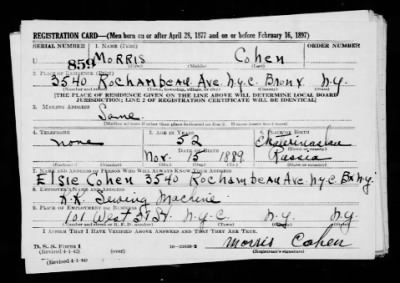 REGISTRATION CARD—(Men born on or after April 28, 1877 and on or before February 16, 1897)
SERIAL NUMBER 1. NAME (Print)
859 MORRIS Cohen
(First) (Middle) (Last)
2. PLACE OF RESIDENCE (Print)
3540 Rochambeau Ave. N.Y.C. Bronx N.Y.
(Number and street) (Town, township, village, or city) (County) (State)
[THE PLACE OF RESIDENCE GIVEN ON THE LINE ABOVE WILL DETERMINE LOCAL BOARD
JURISDICTION; LINE 2 OF REGISTRATION CERTIFICATE WILL BE IDENTICAL]
3. MAILING ADDRESS
Same
4. TELEPHONE 5. AGE IN YEARS 6. PLACE OF BIRTH
none 52
DATE OF BIRTH
Nov. 15 1889 Russia
7. NAME AND ADDRESS OF PERSON WHO WILL ALWAYS KNOW YOUR ADDRESS
Elsie Cohen 3540 Rochambeau Ave. N.Y.C. Bx N.Y.
8. EMPLOYER'S NAME AND ADDRESS
Sewing Machine
9. PLACE OF EMPLOYMENT OR BUSINESS
101 West St. N.Y.C. N.Y. N.Y.
(Number and street or R. F. D. number) (Town) (County) (State)
I AFFIRM THAT I HAVE VERIFIED ABOVE ANSWERS AND THAT THEY ARE TRUE.
Morris Cohen
D. S. S. Form 1
(Revised 4-1-42) (Registrant's signature)
(Revised 4-1-42)